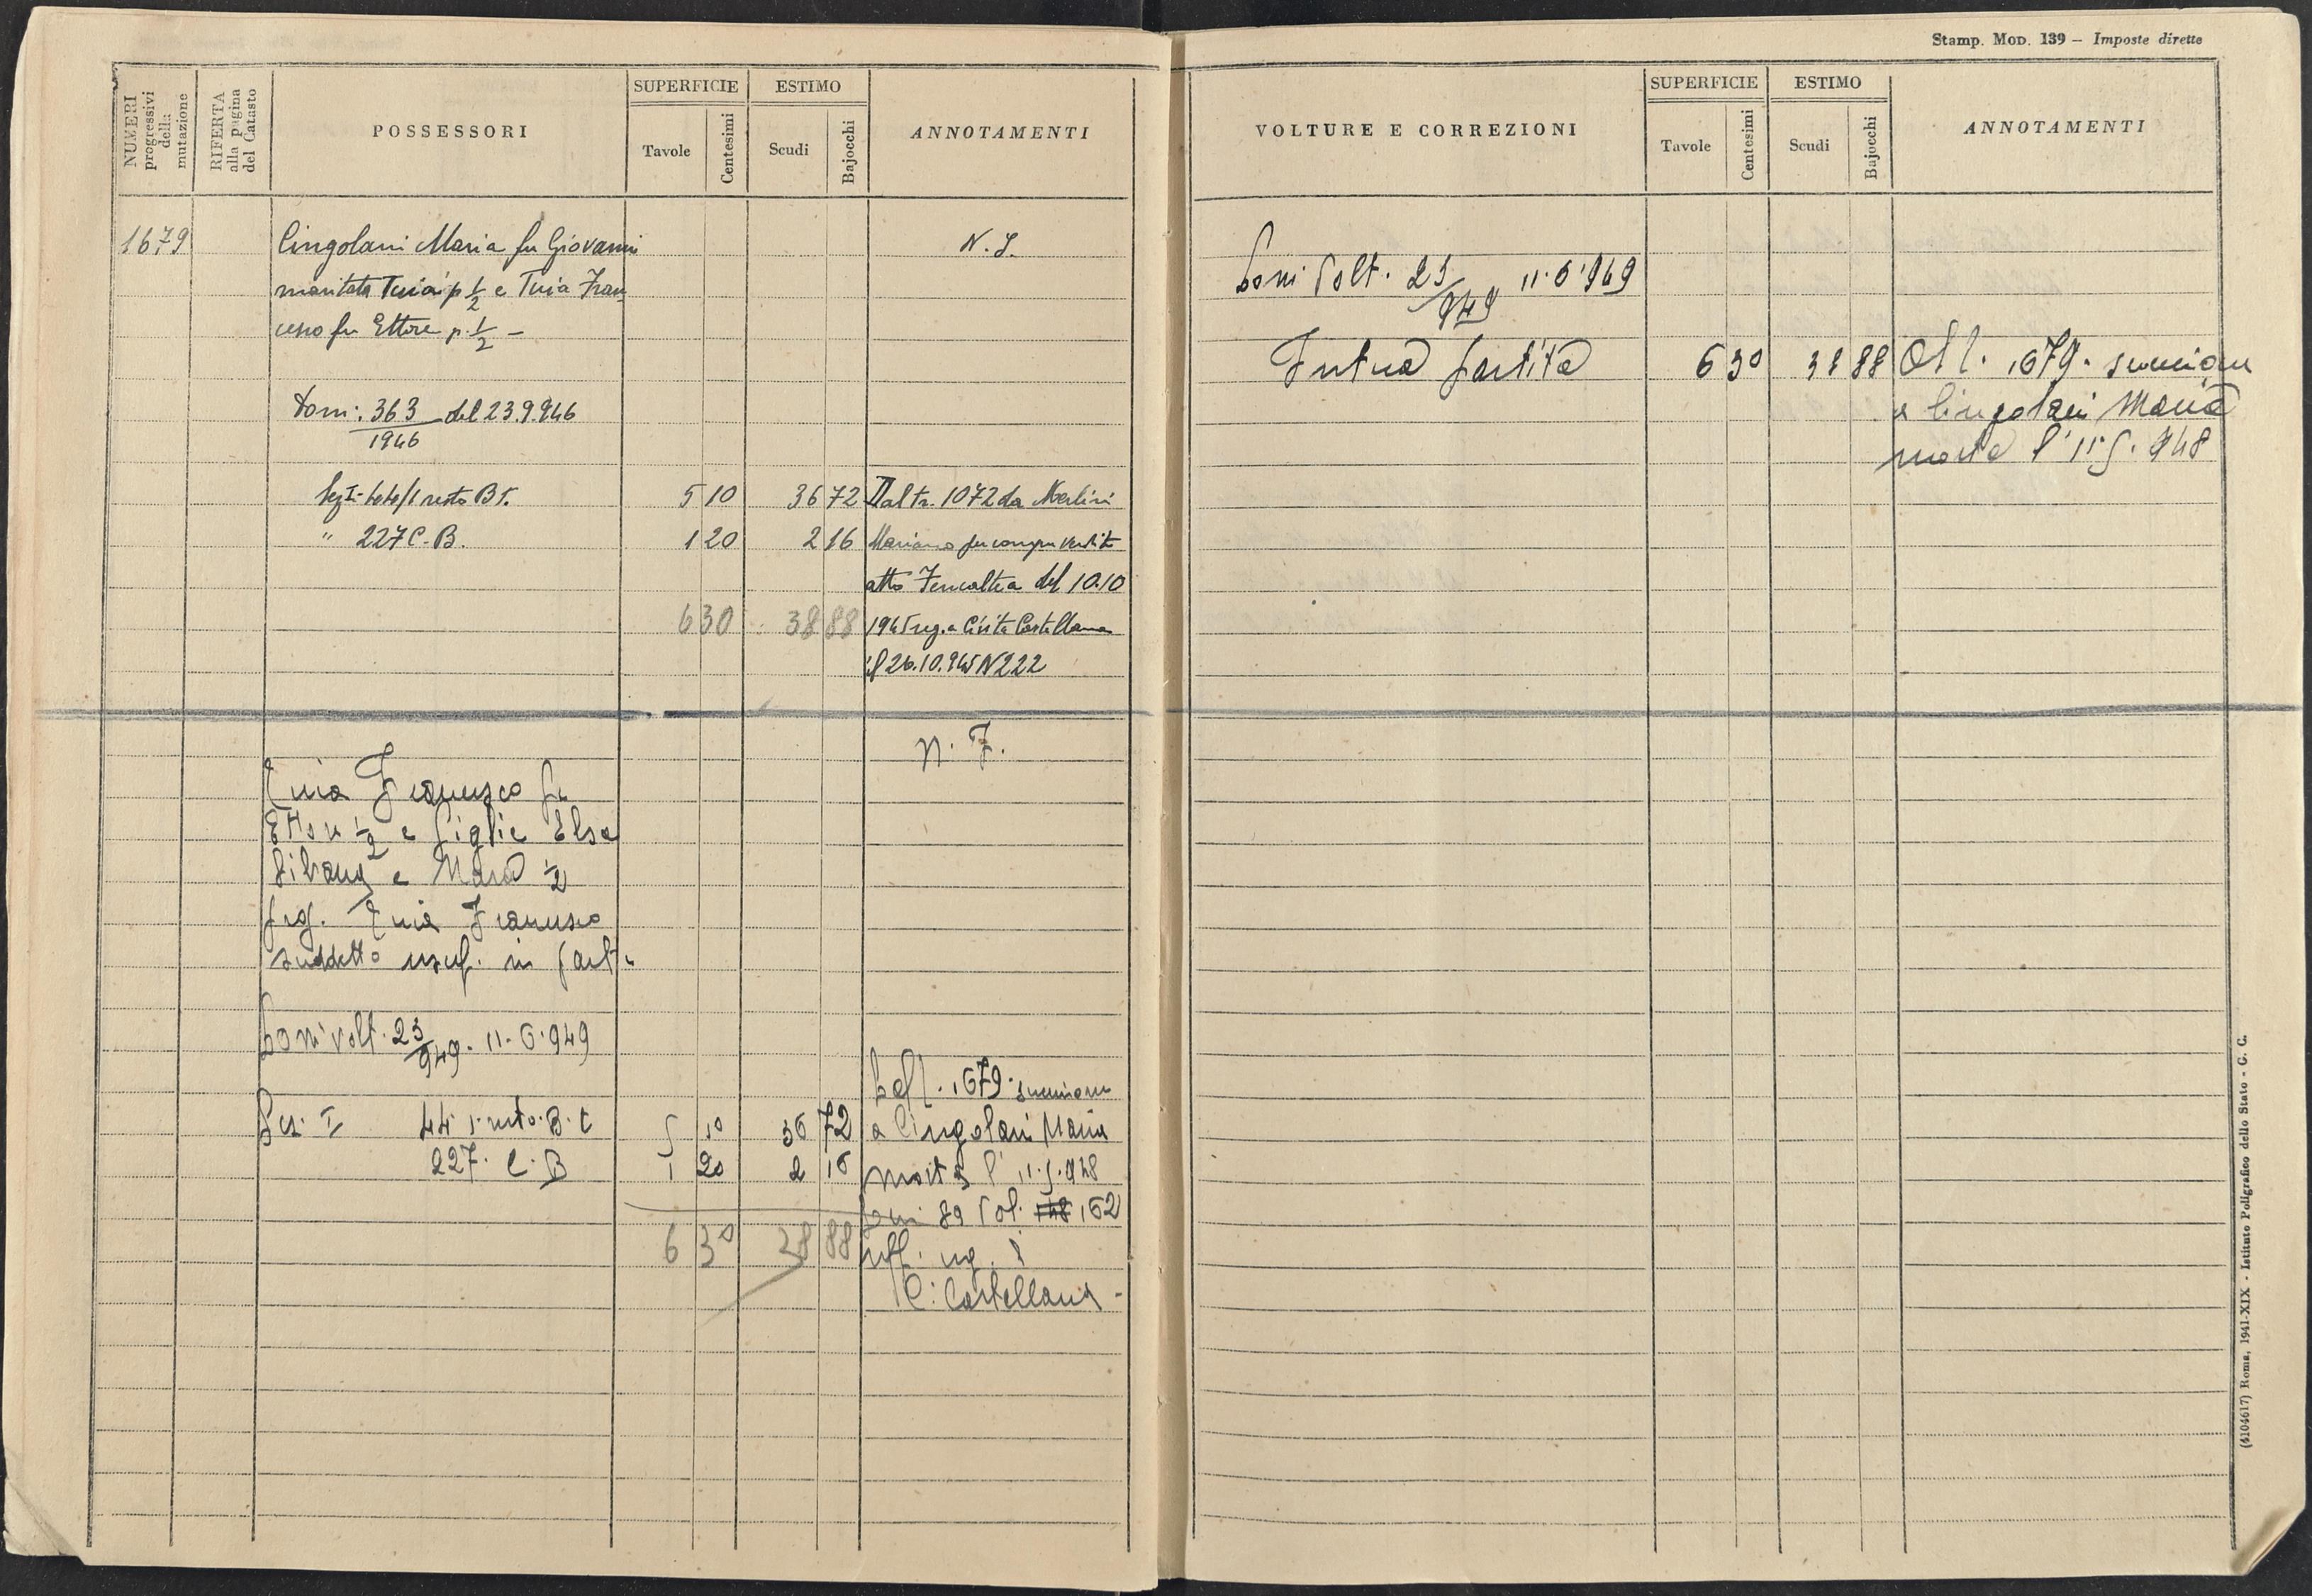 NUMERI progressivi della mutazione
RIFERTA alla pagina del Catasto
POSSESSORI
SUPERFICIE
Tavole
Centesimi
ESTIMO
Scudi
Bajocchi
ANNOTAMENTI
1679
Cingolani Maria fu Giovanni
N. I.
maritata Tuia p. 1/2 e Tuia Fran
cesco fu Ettore p. 1/2 —
Dom: 363/1946 del 23.9.946
resto B T. 5 10 36 72 Dal tr. 1072 da Merlini
" 227 C. B. 1 20 2 16 Mariano per compra vendita
atto del 10.10
6 30 38 88 1945 reg. a Civita Castellana
il 26.10.945 N 222
N. I.
Tuia Francesco fu
Ettore 1/2 e figlie Elsa
Silvana e Maria 1/2
prop. Tuia Francesco
suddetto usuf. in parte
Dom volt. 23/949. 11.6.949
1679. successione
Sez. I 44 1 resto. B. T 5 10 36 72 a Cingolani Maria
227. C. B 1 20 2 16 morta l' 11.5.948
89 Vol. 162
6 30 38 88 uff. reg.
C: Castellana -
Stamp. Mod. 139 — Imposte dirette
VOLTURE E CORREZIONI
SUPERFICIE
Tavole
Centesimi
ESTIMO
Scudi
Bajocchi
ANNOTAMENTI
Dom Volt. 23/949 11.6.949
Intera partita 6 30 38 88 Al 1679. successione
a Cingolani Maria
morta l' 11.5.948
(4104617) Roma, 1941-XIX - Istituto Poligrafico dello Stato - G. C.